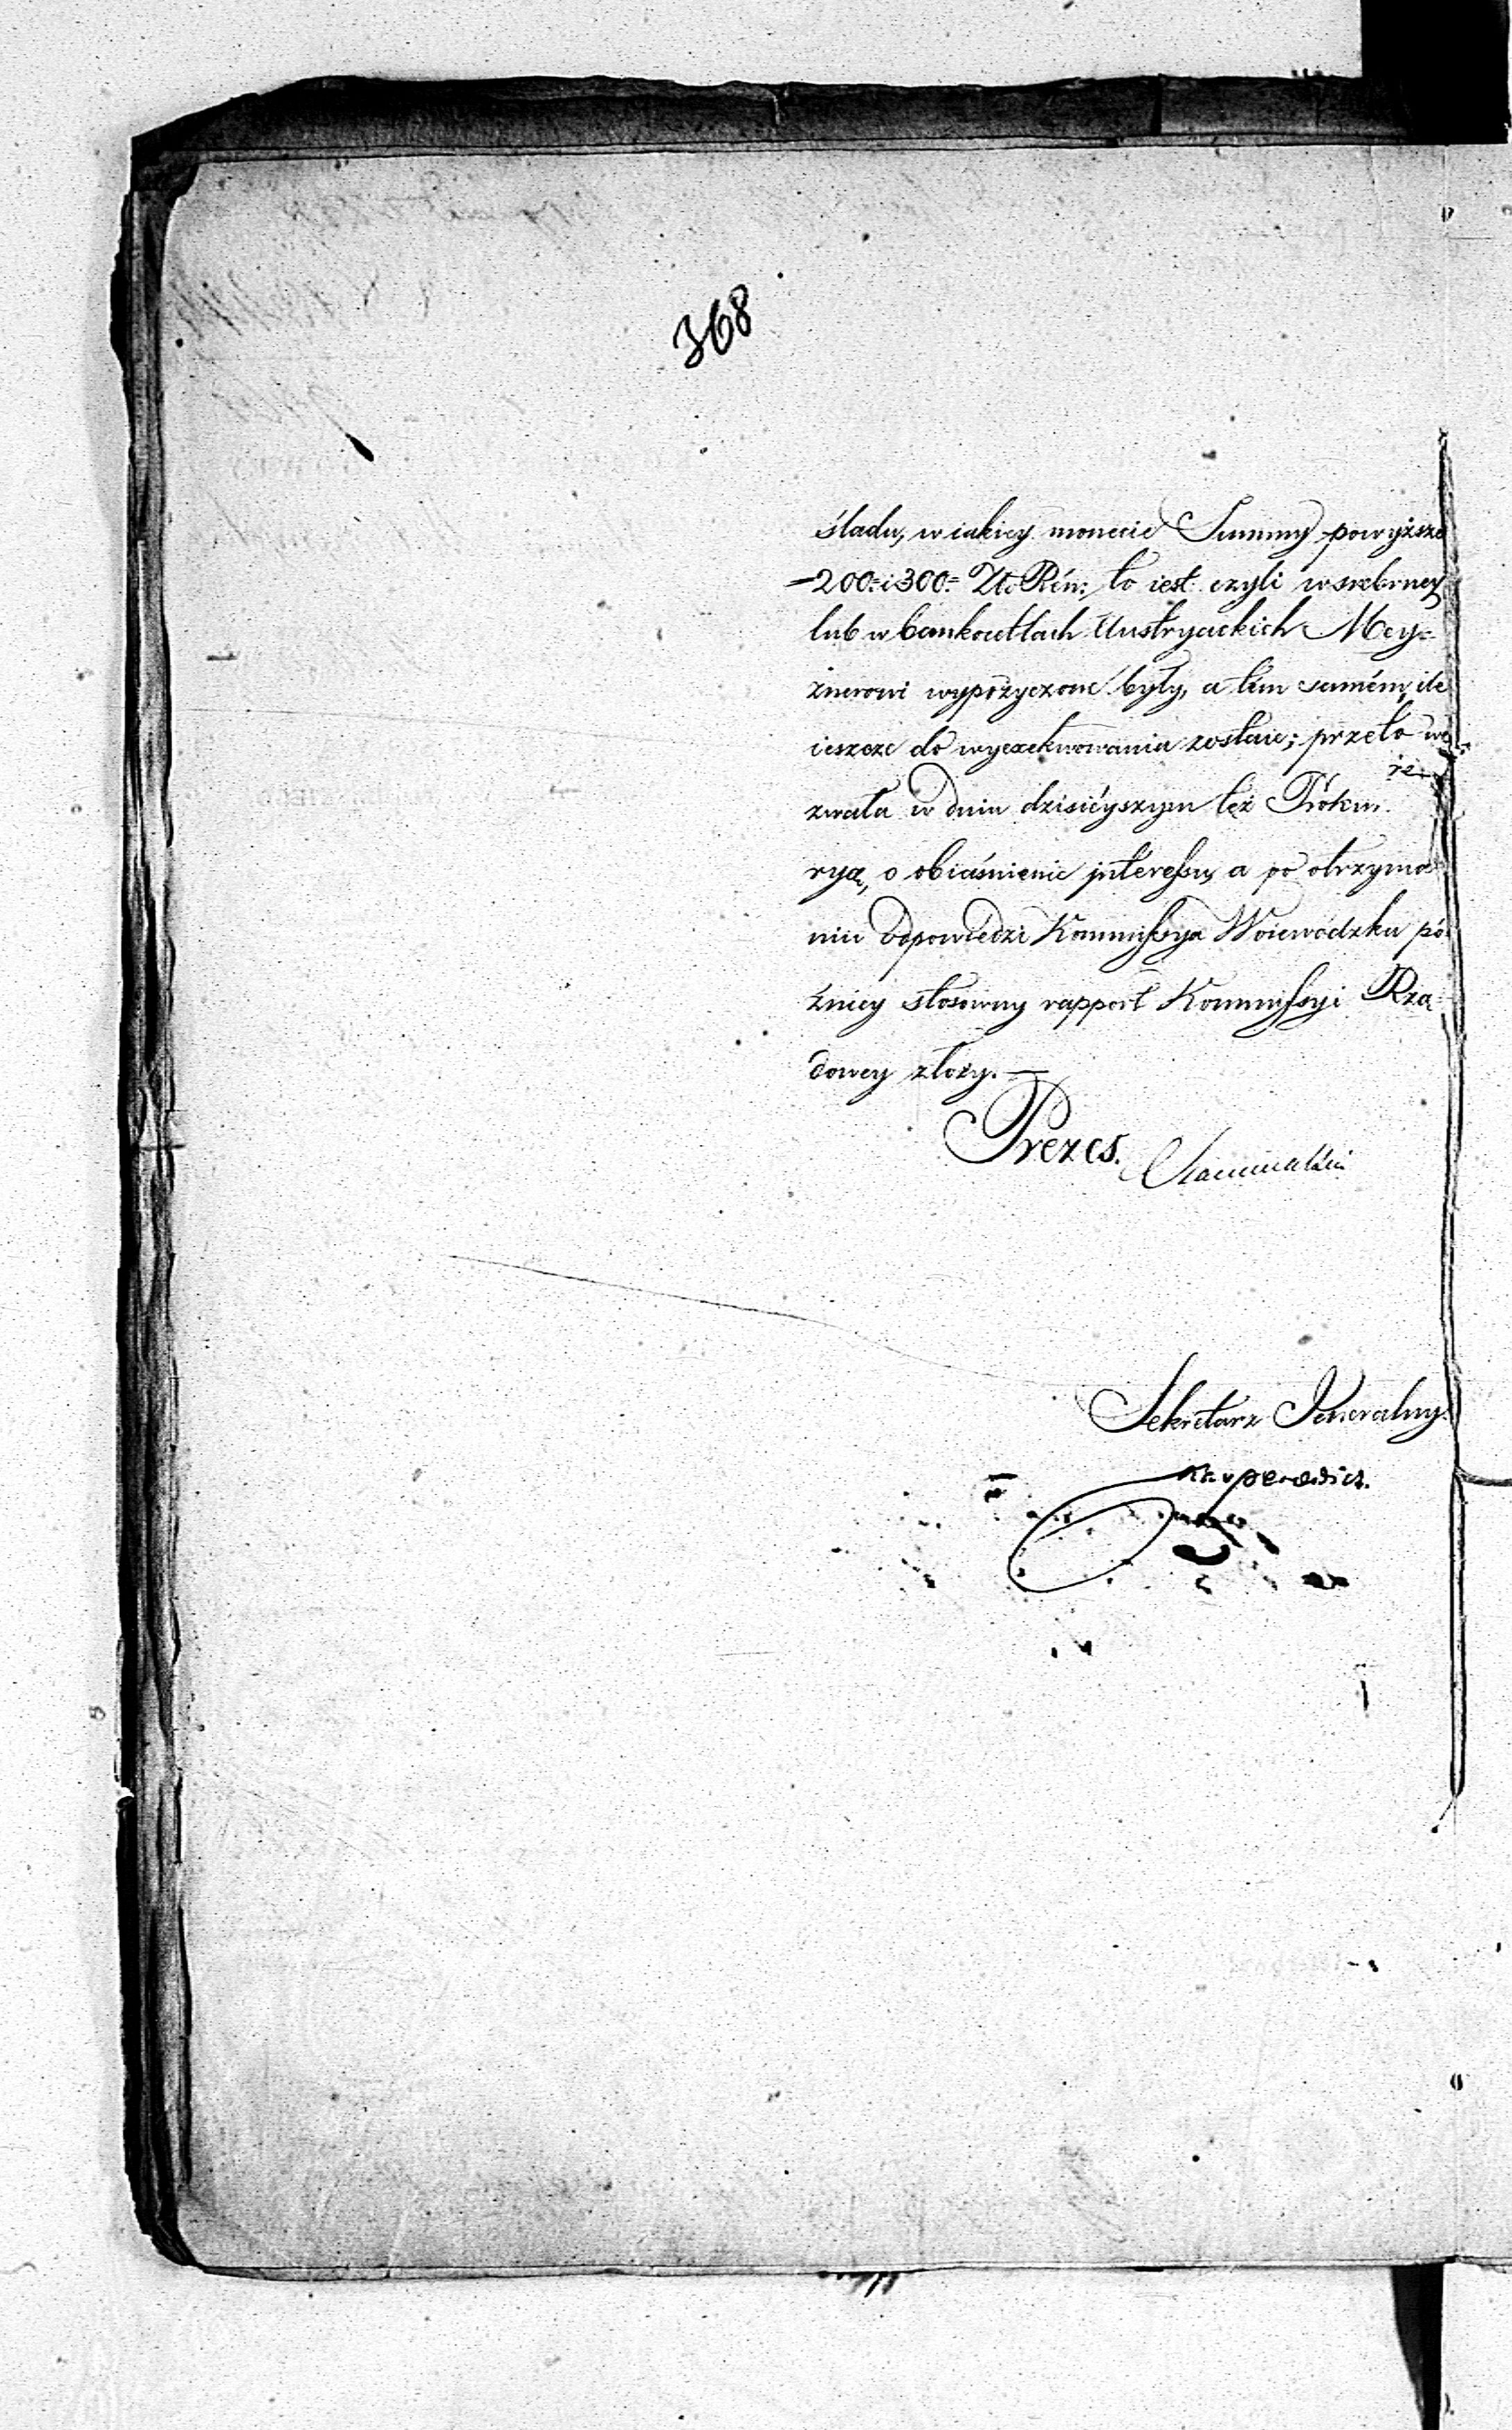 368
śladu, w iakiey monecie Summy powyższe
200.= i 300.= Zł. Rén: to iest czyli w srebrney
lub w bankocetlach Austryackich Mey=
znerowi wypożyczone były, a tém samém, ile
ieszcze do wyexekwowania zostaie; przeto we
zwała w dniu dzisiéyszym też Prokur.
ryą, o obiaśnienie jnteressu, a po otrzyma
niu odpowiedzi Kommissya Woiewodzka pó
źniey stosowny rapport Kommissyi Rzą
dowey złoży. —
Prezes.
Sekretarz Jeneralny.